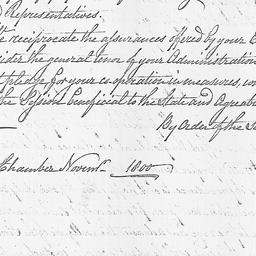 Representatives.
reciprocate the assurances offered by your
sider the general tenor of your Administration
pledge for your co-operation in measures, w
the Session beneficial to the State and Agreeab
By Order of the Se
Chamber Novemr. 1800